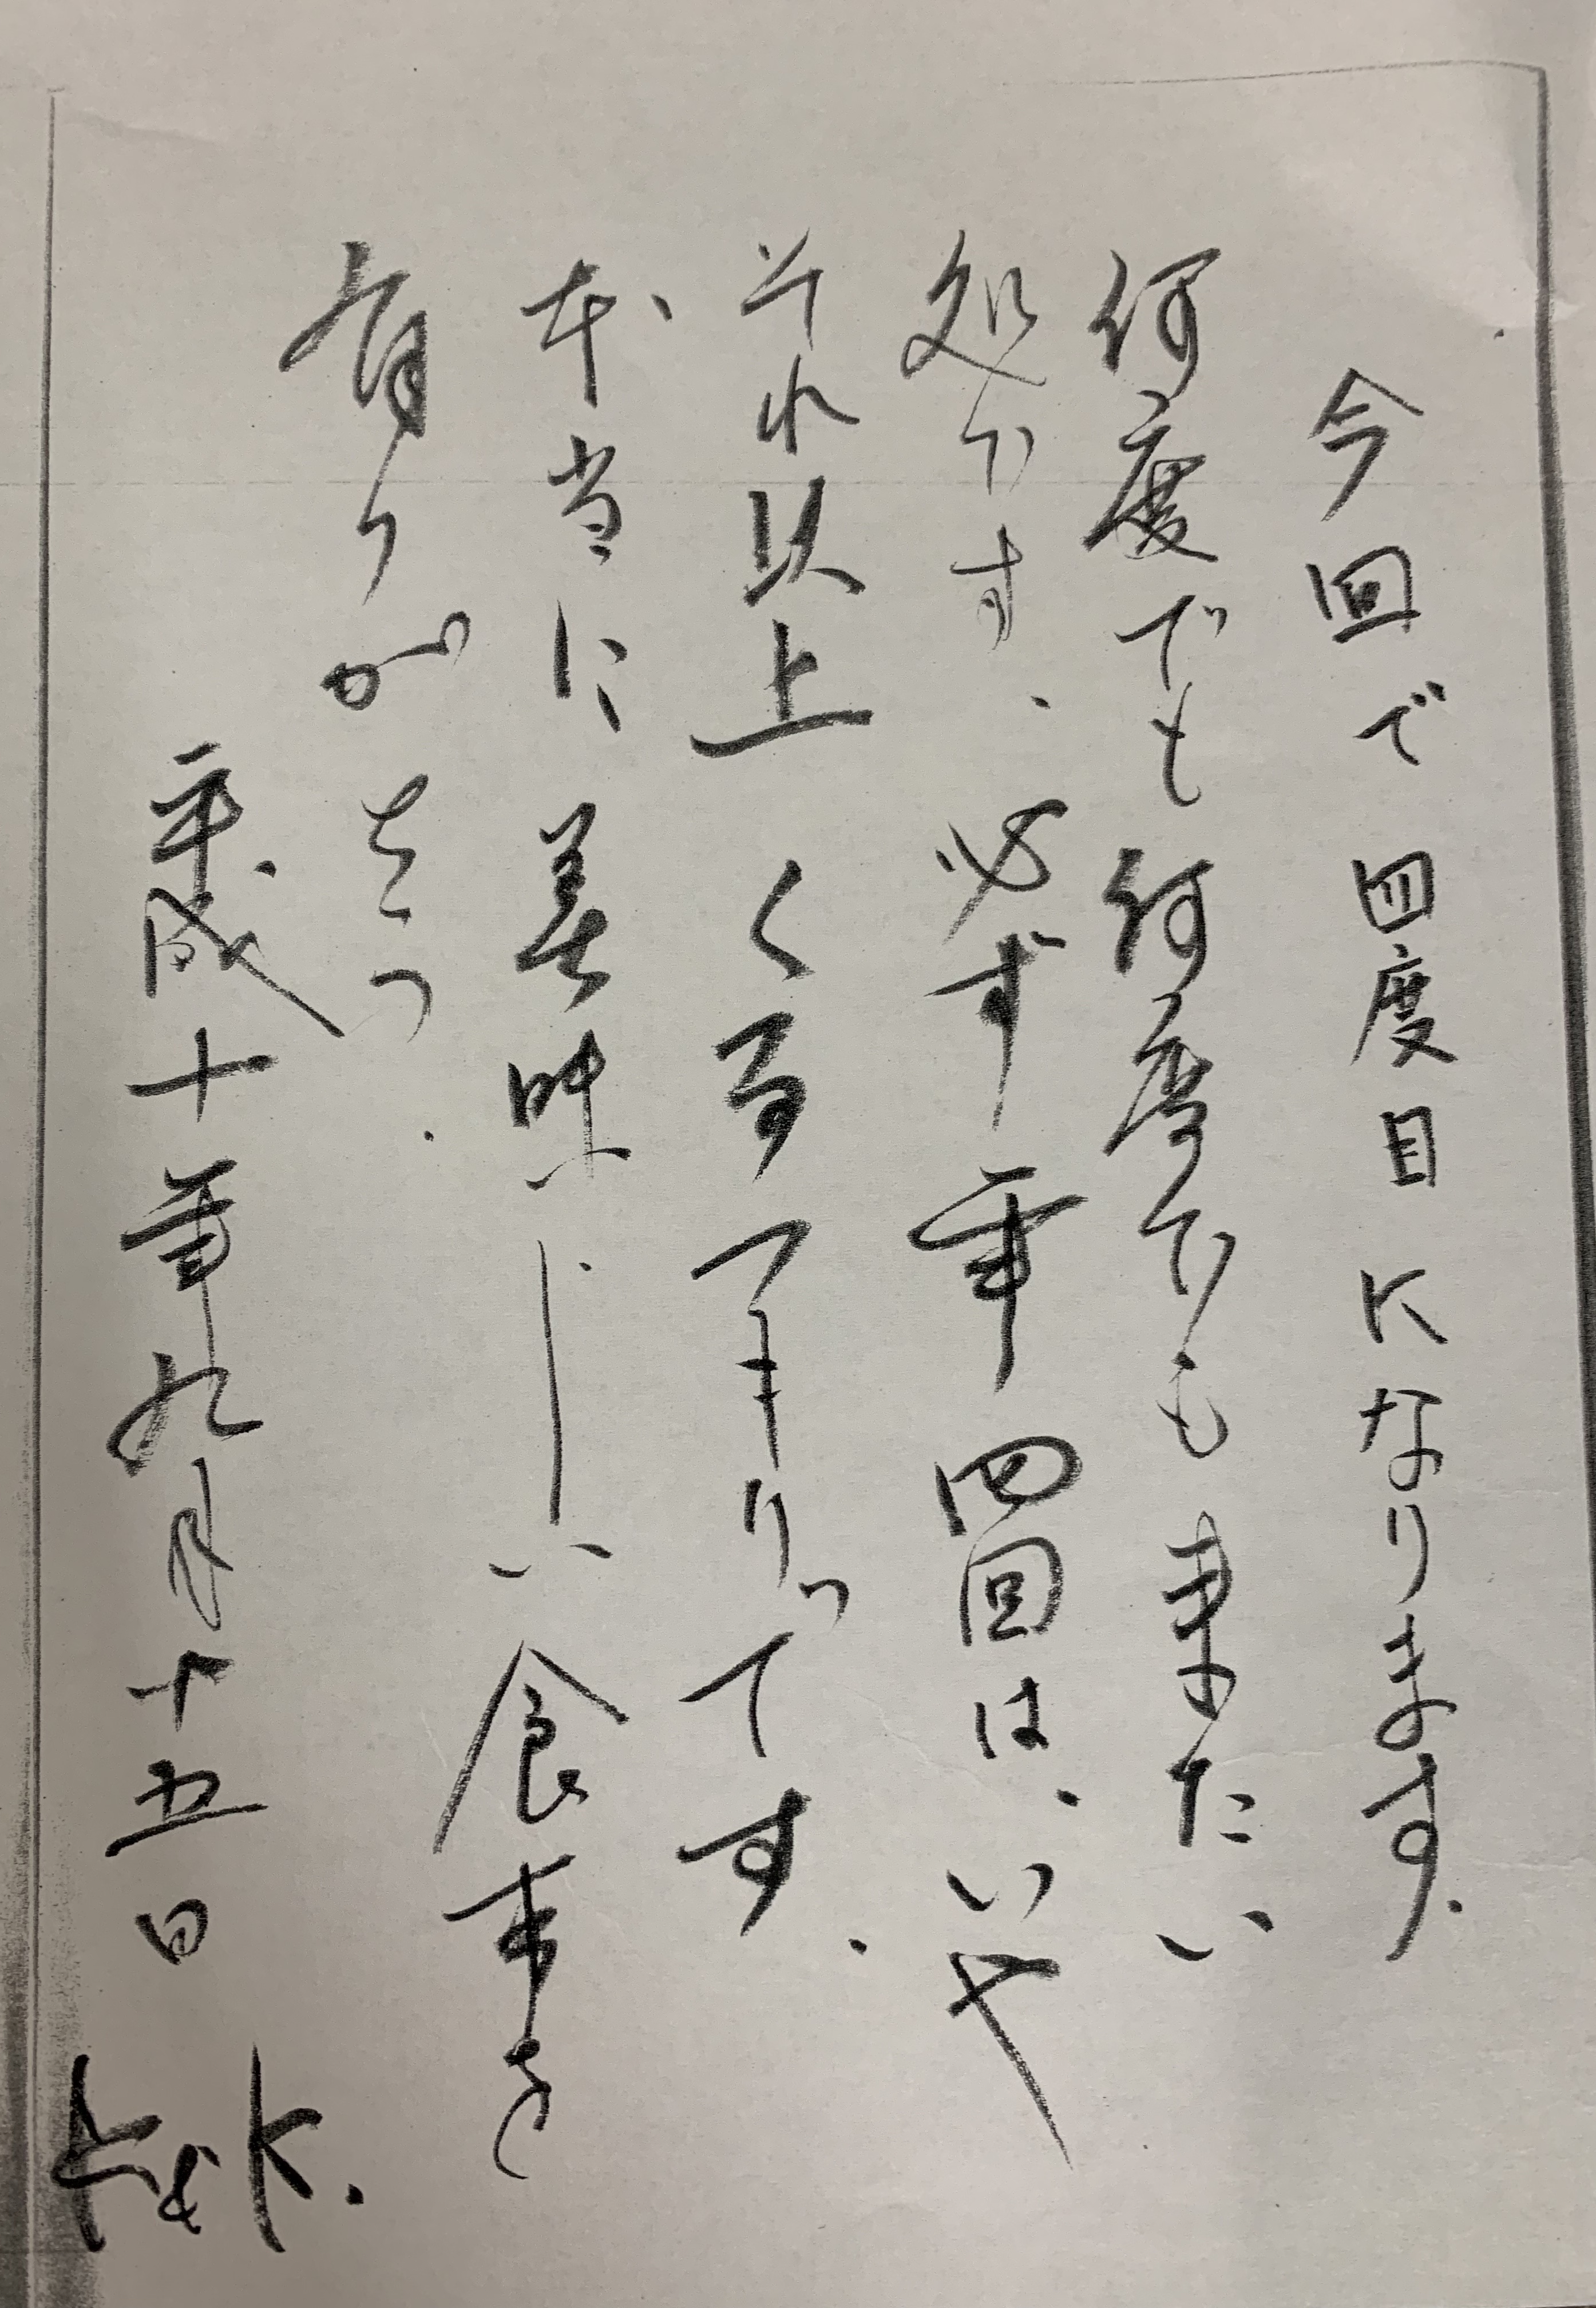 今回で四度目になります。
何度でも何度でも来たい
処です、必ず年四回は、いや
それ以上くるつもりです。
本当に美味しーい食事を
有りがとう。
平成十一年九月十五日
K.